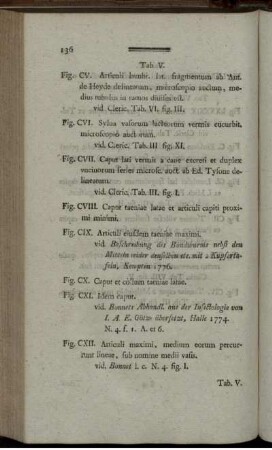 136
Tab. V.
Fig. CV. Articuli lumbr. lat. fragmentum ab Ant.
de Heyde delineatum, microscopio auctum, me-
dius tubulus in ramos divisus est.
vid Cleric. Tab. VI. fig. III.
Fig. CVI. Sylva vasorum lacteorum vermis cucurbit.
microscopio auctorum.
vid. Cleric. Tab. III fig. XI.
Fig. CVII. Caput lati vermis a cane excreti et duplex
uncinorum series microsc. auct. ab Ed. Tysone de-
lineatorum.
vid. Cleric. Tab. III. fig. I.
Fig. CVIII. Caput taeniae latae et articuli capiti proxi-
mi minimi.
Fig. CIX. Articuli ejusdem taeniae maximi.
vid. Beschreibung des Bandwurms nebst den
Mitteln wider denselben etc. mit 2 Kupferta-
feln, 1776.
Fig. CX. Caput et collum taeniae latae.
Fig. CXI. Idem caput.
vid. Bonnets Abhandl. aus der Insektologie von
I. A. E. Götze übersetzt, Halle 1774.
N. 4. f. 1. A. et 6.
Fig. CXII. Articuli maximi, medium eorum percur-
runt lineae, sub nomine medii vasis.
vid. Bonnet l. c. N. 4. fig. I.
Tab. V.